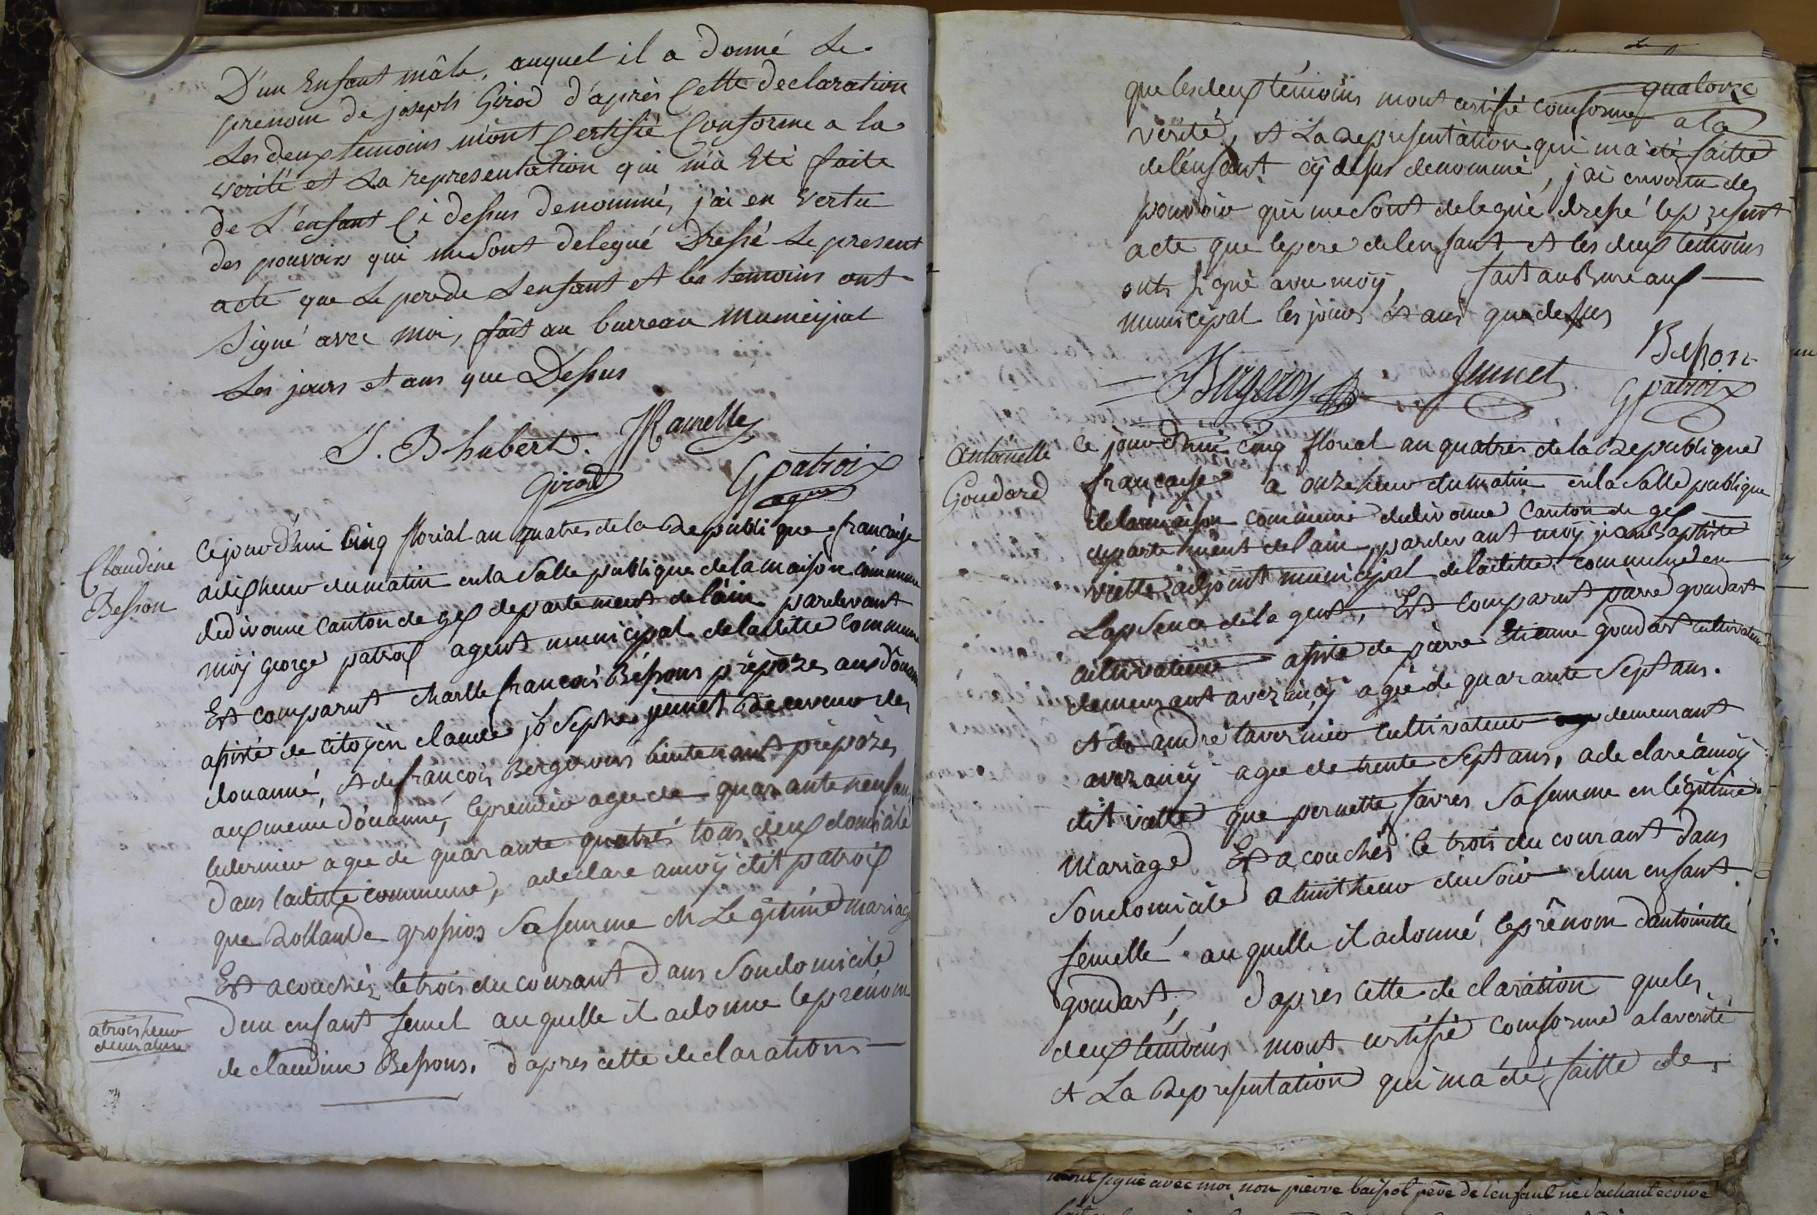 D'un Enfant mâle, auquel il a donné Le
prenom de joseph Girod d'après Cette declaration
Les deux temoins m'ont Certifié Conforme a la
verité et La representation qui m'a Eté faite
de L'enfant Ci dessus denommé, j'ai en vertu
des pouvoirs qui me sont delegué Dressé Le present
acte que Le pere de L'enfant et les temoins ont
signé avec moi, fait au bureau municipal
Les jours et ans que Dessus
J. B hubert. JRamelle
Girod GPatroix
agent
Claudine
Besson
Ce jourd'hui Cinq florial an quatre de la Republique française
a dix heur du matin en la Salle publique de la maison commune
de divonne canton de gex departement de l'ain pardevant
moÿ george patroix agent municipal de la ditte Commune
Est comparut Charlle françois Bessons prepozes aux douane
assisté de citoyen claude joseph jeunet Receveur des
douanne, et de françois Bergerons lieutenant prepozes
aux meme douanne, le premier agee de quarante neuf ans
le dernier agee de quarante quatre tous deux domicile
dans laditte commune, a declare a moÿ dit patroix
que Rollande grosios Sa femme En Legitime mariage
Est acouchez le trois du courant dans Son domicile
a trois heur
du matin
d'un enfant femel au quelle il a donne le prenom
de claudine Bessons. d'après cette declaration
quatorze
que les deux témoins mont certifié comforme a la
verité, et La Representation qui ma été faitte
de l'enfant cÿ desus denommé, j'ai en vertu des
pouvoir qui me sont delegué dressé le present
acte que le pere de l'enfant et les deux temoins
onts signé avec moÿ, fait au Bureaux
municipal les jours et ans que dessus
Besson
Bergeron Jeunet GPatroix
Antoinette
Goudard
Ce jourd'hui Cinq florial an quatre de la Republique
française a onze heur du matin en la Salle publique
de la maison commune de divonne Canton de gex
departement de l'ain, pardevant moÿ jean Baptiste
viette adjoint municipal de laditte commune en
L'apsence de l'agent, Est comparut pierre goudart
cultivateur assisté de pierre Etienne goudart cultivateur
demeurant a verzancÿ agée de quarante Sept ans.
et de andré tavernier cultivateur demeurant
a verzancÿ agee de trente Sept ans, a declaré a moÿ
dit viette que pernette favres Sa femme en légitime
Mariage Est acouchés le trois du courant dans
Son domicile a huit heur du soir d'un enfant
femelle au quelle il a donné le prénom d'antoinette
goudart, d'après cette declaration que les
deux témoins mont certifié comforme a la verité
et La Representation qui ma été faitte de
nont signé avec moi, non pierre baizot père de l'enfant ne sachant écrire